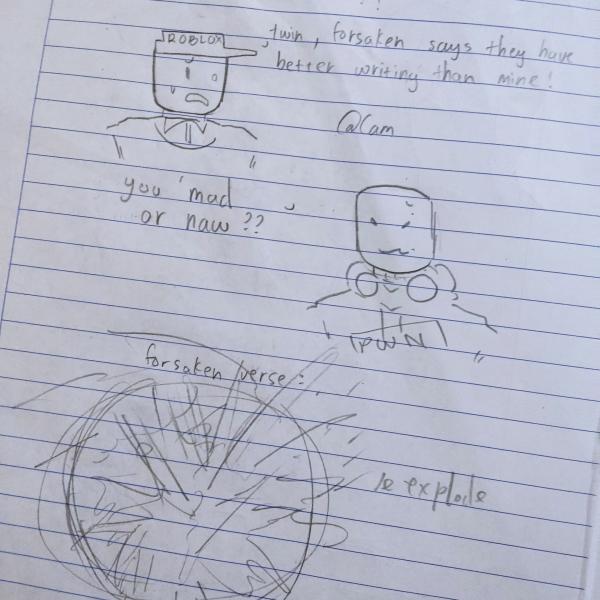 ROBLOX
twin, forsaken says they have
better writing than mine!
@Cam
you mad
or naw??
PWN
forsaken verse:
explode